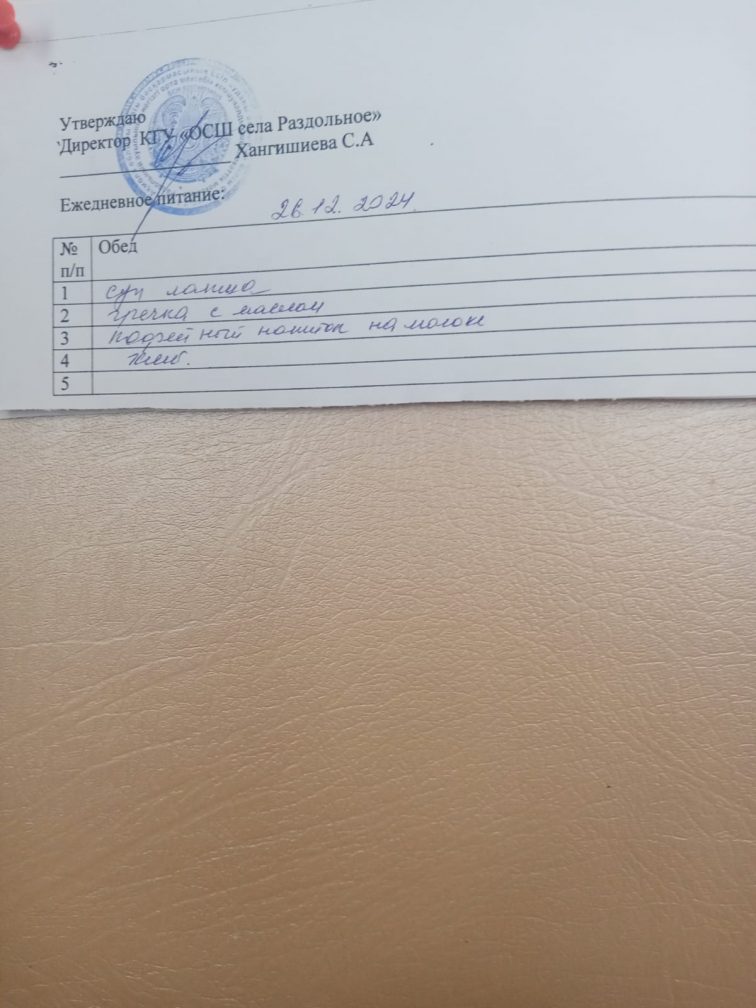 Утверждаю
Директор КГУ «ОСШ села Раздольное»
Хангишиева С.А
Ежедневное питание: 26.12.2024
№ п/п Обед
1 суп лапша
2 гречка с маслом
3 кофейный напиток на молоке
4 хлеб.
5